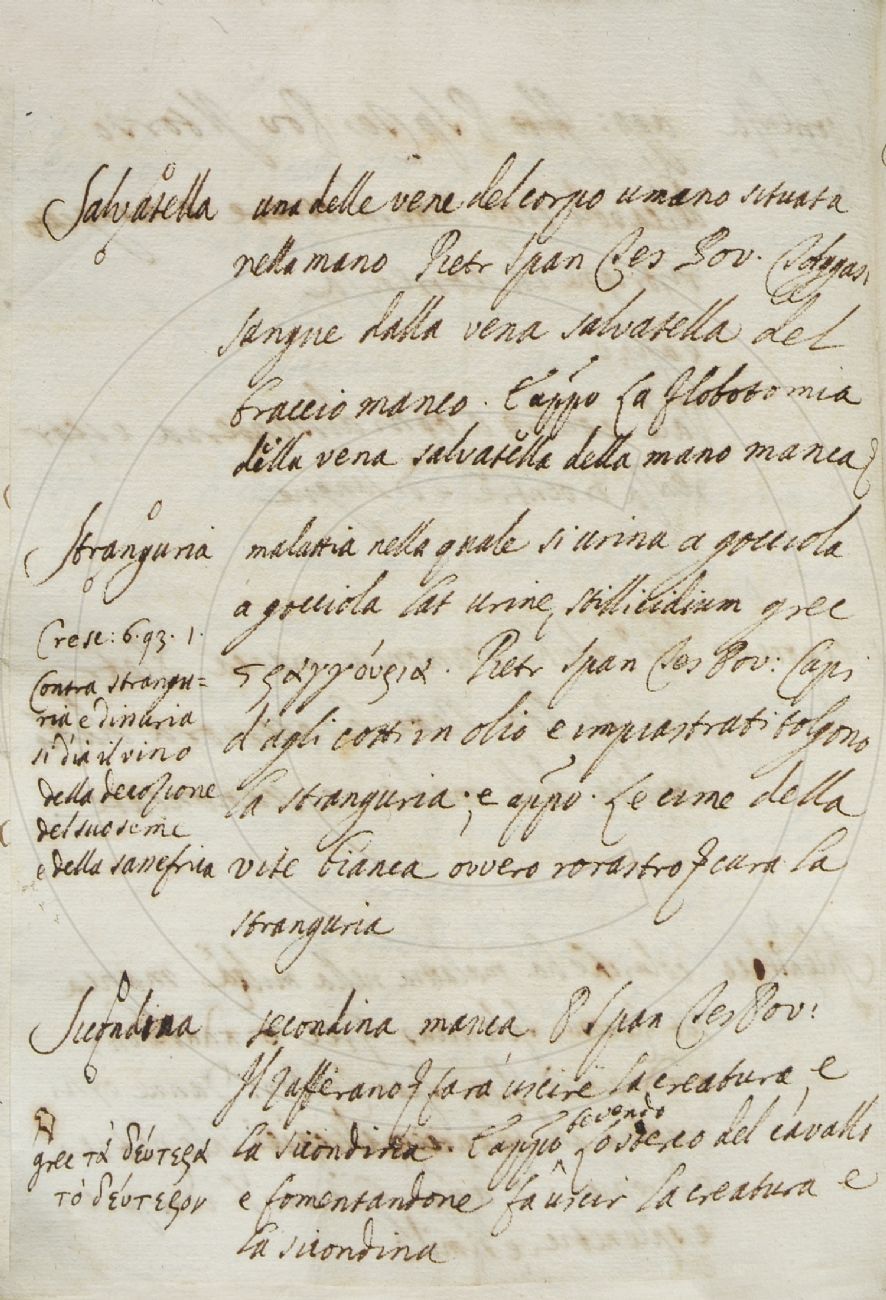 Salvatella una delle vene del corpo umano situata
nella mano Pietr Span Tes Pov. Tolgasi
sangue dalla vena salvatella del
braccio manco. E appo La flobotomia
della vena salvatella della mano manca
Stranguria malattia nella quale si urina a gocciola
a gocciola lat urinę stillicidium grec
ςραγγόυρια. Pietr Span Tes Pov: Capi
d'agli cotti in olio e impiastrati tolgono
la stranguria; e appo. Le cime della
vite bianca ovvero rorastro cura la
stranguria
Cresc: 6. 93. 1.
Contra strangu=
ria e dinuria
si dia il vino
della decozione
del suo seme
e della sassefrica
Sicondina secondina manca P Span Tes Pov:
Il zafferano farà uscire la creatura, e
la sicondina. E appo bevendo Lo sterco del cavallo
e fomentandone fa uscir la creatura e
la sicondina
grec τὰ δέυτερα
τὸ δέυτερον